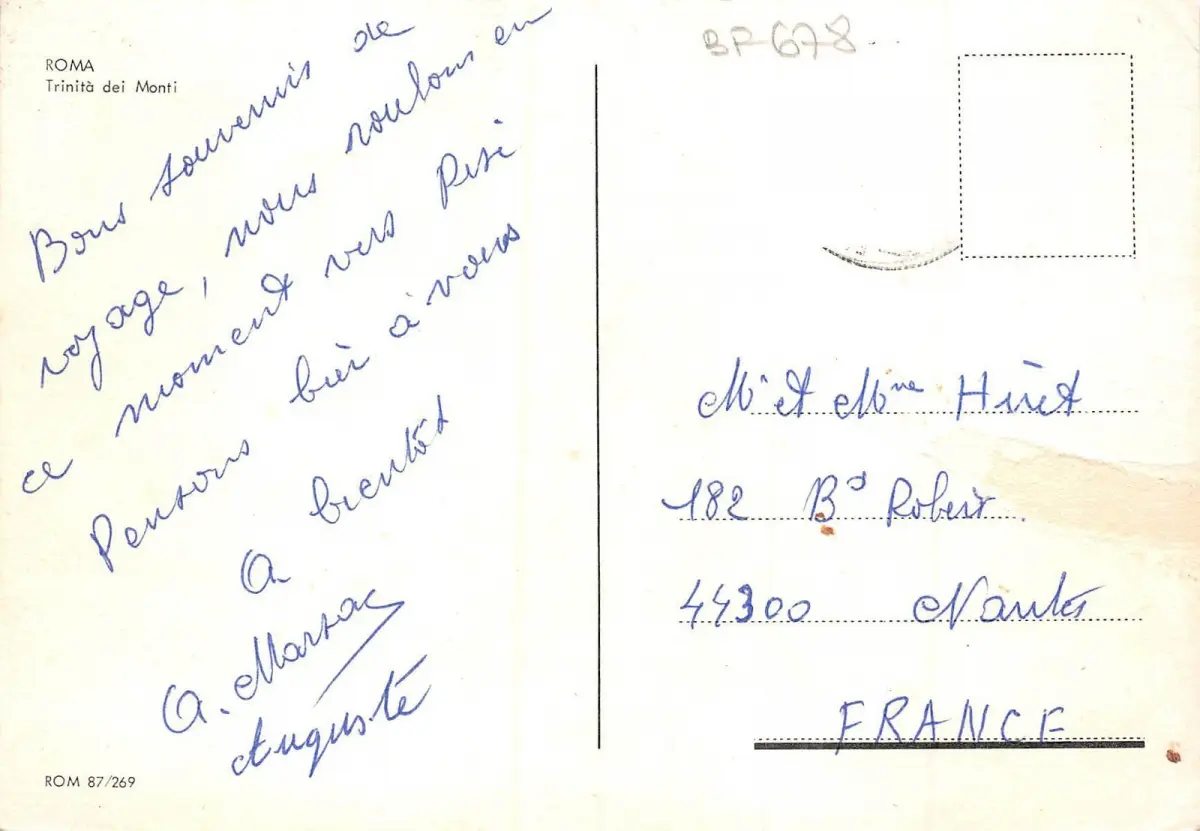 ROMA
Trinità dei Monti
Bons souvenirs de
voyage, nous roulons en
ce moment vers Pise
Pensons bien à vous
A bientôt
A. Marsac
Auguste
ROM 87/269
BF-678
Mr et Mme Hiret
182 Bd Robert
44300 Nantes
FRANCE